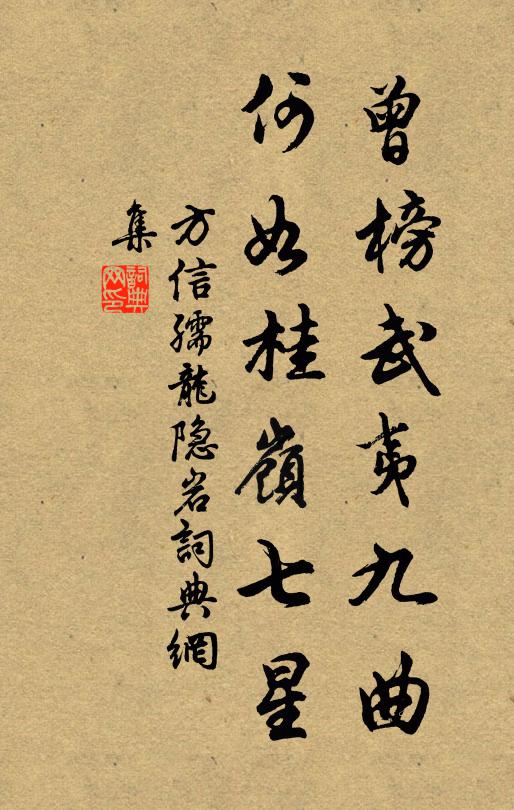 曾榜武夷九曲
何如桂嶺七星
方信孺龍隐岩詞典網
集
詞典
网印